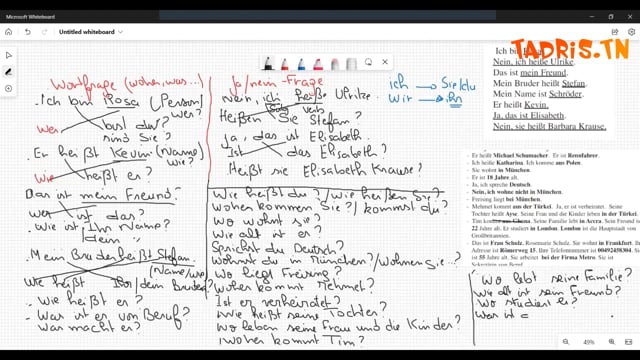 Microsoft Whiteboard
Untitled whiteboard
TADRIS.TN
Wortfrage (woher, was...)
Ich bin Rosa (Person)
wer?
Wer bist du?
sind Sie?
Er heißt Kevin (Name)
wie?
Wie heißt er?
Das ist mein Freund.
Wer ist das?
Wie ist Ihr Name?
dein
Mein Bruder heißt Stefan.
(Name/wie)
Wie heißt Ihr/dein Bruder?
Wie heißt er?
Was ist er von Beruf?
Was macht er?
Ja/nein-Frage
Nein, ich heiße Ulrike.
Heißen Sie Stefan?
Ja, das ist Elisabeth.
Ist das Elisabeth?
Heißt sie Elisabeth Krause?
Wie heißt du?/wie heißen Sie?
Woher kommen Sie?/kommst du?
Wo wohnt sie?
Wie alt ist er?
Sprichst du Deutsch?
Wohnst du in München?/Wohnen Sie..?
Wo liegt Freising?
Woher kommt Mehmet?
Ist er verheiratet?
Wie heißt seine Tochter?
Wo leben seine Frau und die Kinder?
Woher kommt Tim?
ich → Sie/du
Wir →
Wo lebt seine Familie?
Wie alt ist sein Freund?
Wo studiert er?
Wer ist
Nein, ich heiße Ulrike.
Das ist mein Freund.
Mein Bruder heißt Stefan.
Mein Name ist Schröder.
Er heißt Kevin.
Ja, das ist Elisabeth.
Nein, sie heißt Barbara Krause.
- Er heißt Michael Schumacher. Er ist Rennfahrer.
- Ich heiße Katharina. Ich komme aus Polen.
- Sie wohnt in München.
- Er ist 18 Jahre alt.
- Ja, ich spreche Deutsch.
- Nein, ich wohne nicht in München.
- Freising liegt bei München.
- Mehmet kommt aus der Türkei. Ja, er ist verheiratet. Seine
Tochter heißt Ayse. Seine Frau und die Kinder leben in der Türkei.
22 Jahre alt. Er studiert in London. London ist die Hauptstadt von
Großbritannien.
- Das ist Frau Scholz. Rosemarie Scholz. Sie wohnt in Frankfurt. Ihre
Adresse ist Römerweg 13. Ihre Telefonnummer ist 00492458304. Sie
ist 55 Jahre alt. Sie arbeitet bei der Firma Metro. Sie ist
Sekretärin von Beruf.
49%